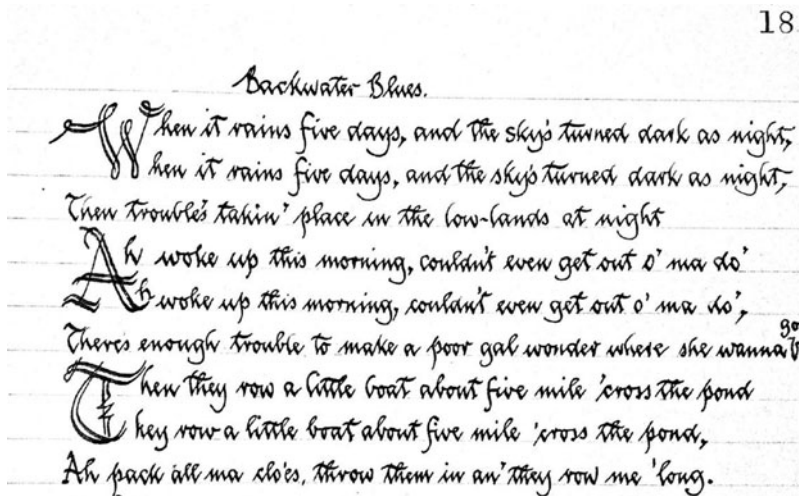 18
Backwater Blues.
When it rains five days, and the sky's turned dark as night,
When it rains five days, and the sky's turned dark as night,
Then trouble's takin' place in the low-lands at night
Ah woke up this morning, couldn't even get out o' ma do'
Ah woke up this morning, couldn't even get out o' ma do',
There's enough trouble to make a poor gal wonder where she wanna go
Then they row a little boat about five mile 'cross the pond
They row a little boat about five mile 'cross the pond,
Ah pack all ma clo'es, throw them in an' they row me 'long.